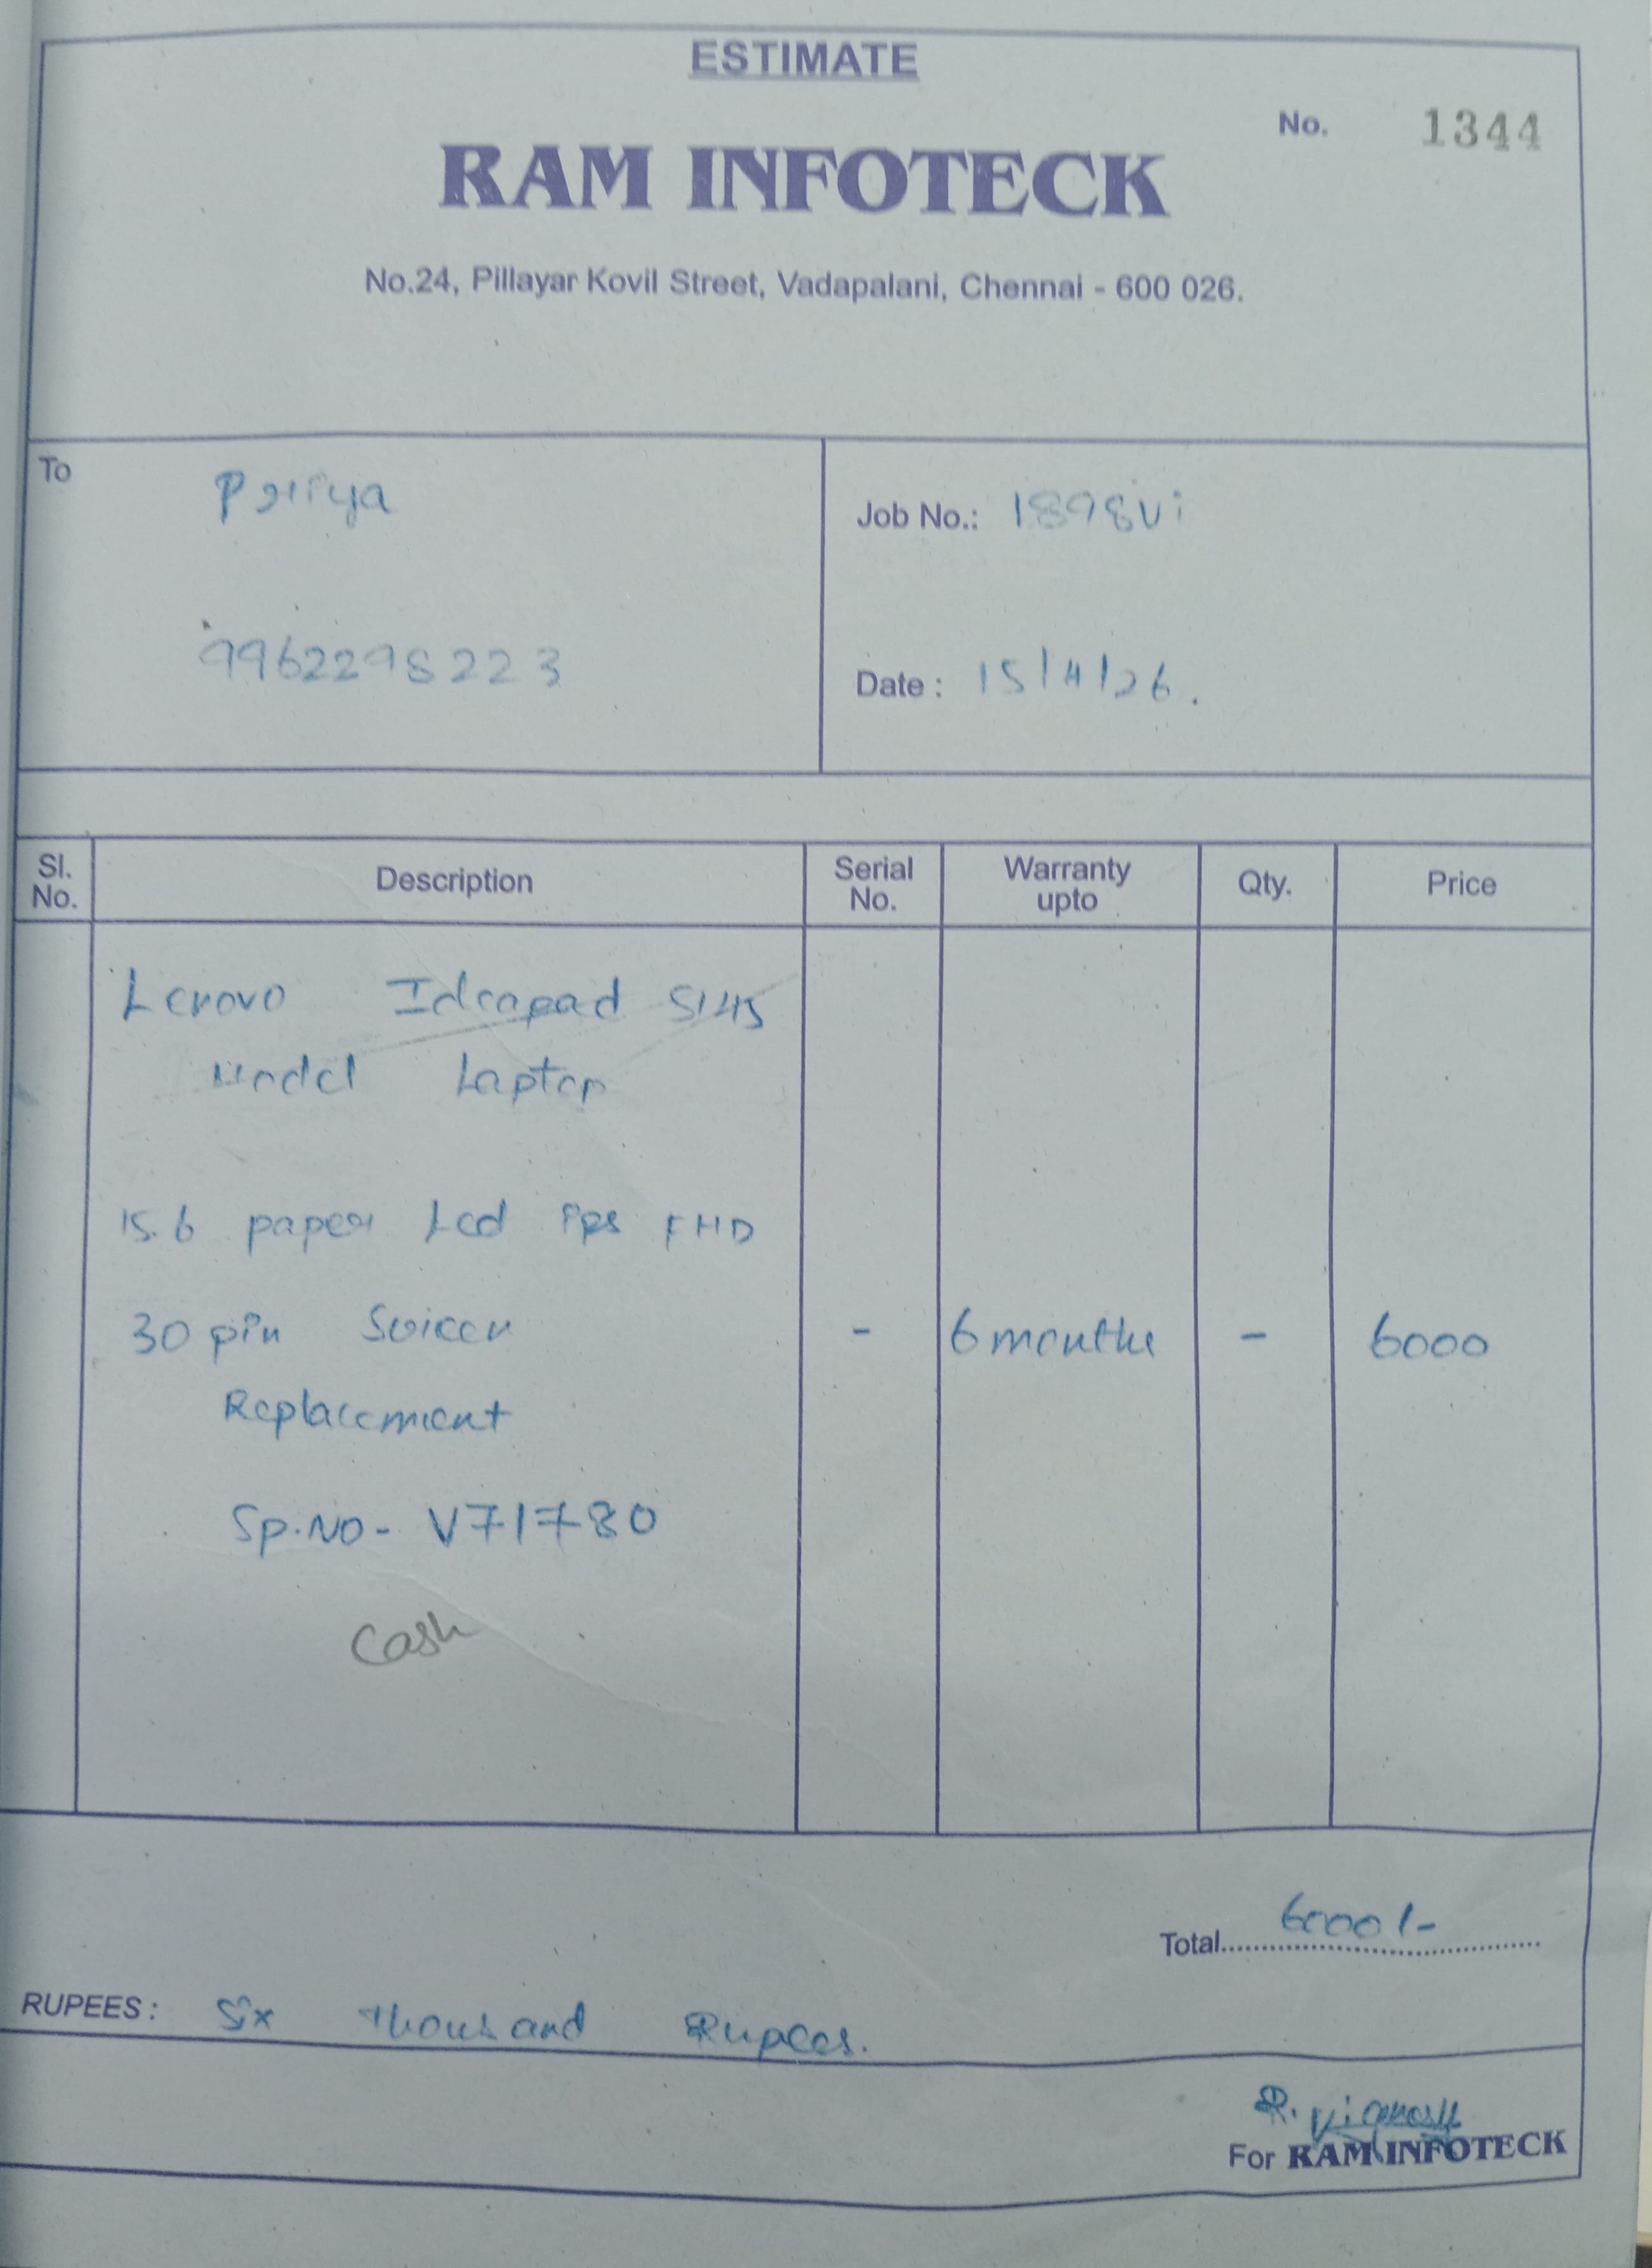 ESTIMATE
No. 1344
RAM INFOTECK
No.24, Pillayar Kovil Street, Vadapalani, Chennai - 600 026.
To Priya
Job No.: 1898Vi
9962298223
Date : 15/4/26.
Sl. No. Description Serial No. Warranty upto Qty. Price
Lenovo Ideapad S145
Model Laptop
15.6 paper Lcd ips FHD
30 pin Screen - 6 months - 6000
Replacement
Sp.No - V71780
Cash
Total 6000/-
RUPEES : Six thousand Rupees.
R. Vignesh
For RAM INFOTECK